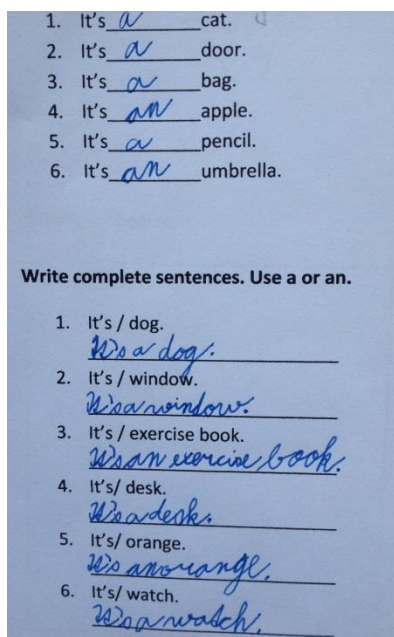 1. It's a cat.
2. It's a door.
3. It's a bag.
4. It's an apple.
5. It's a pencil.
6. It's an umbrella.
Write complete sentences. Use a or an.
1. It's / dog.
It's a dog.
2. It's / window.
It's a window.
3. It's / exercise book.
It's an exercise book.
4. It's/ desk.
It's a desk.
5. It's/ orange.
It's an orange.
6. It's/ watch.
It's a watch.